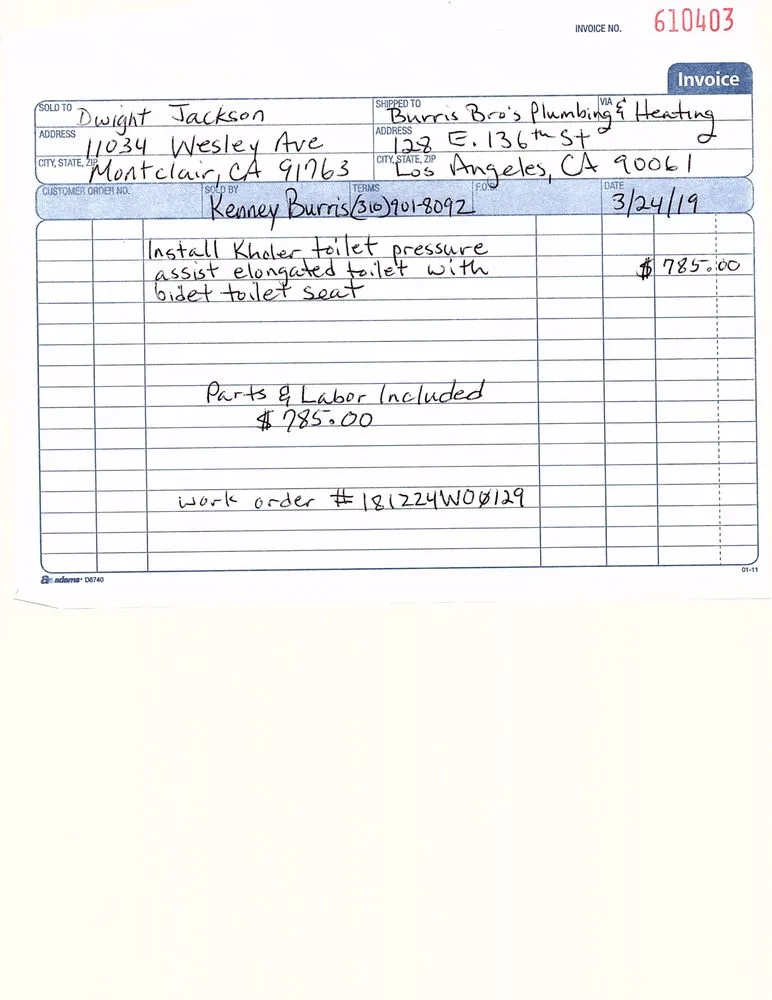 INVOICE NO. 610403
Invoice
SOLD TO Dwight Jackson
SHIPPED TO Burris Bro's Plumbing & Heating
VIA
ADDRESS 11034 Wesley Ave
ADDRESS 128 E. 136th St
CITY, STATE, ZIP Montclair, CA 91763
CITY, STATE, ZIP Los Angeles, CA 90061
CUSTOMER ORDER NO.
SOLD BY Kenney Burris
TERMS (310)901-8092
F.O.B.
DATE 3/24/19
Install Kholer toilet pressure
assist elongated toilet with $ 785.00
bidet toilet seat
Parts & Labor Included
$ 785.00
work order # 181224WO0129
adams D8740
01-11